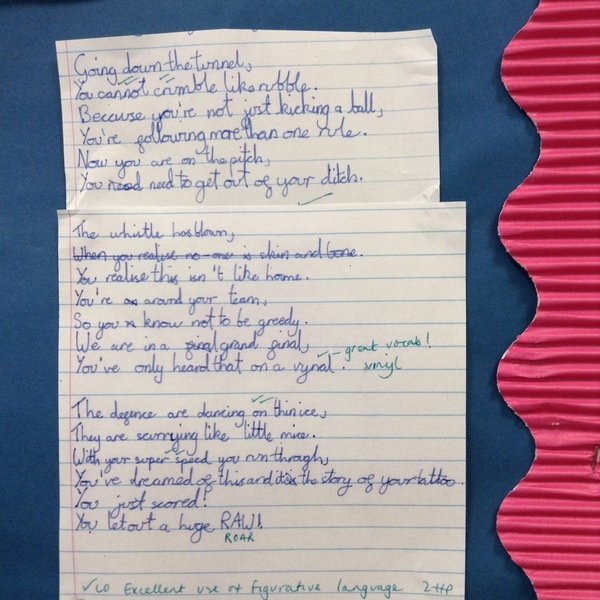 Going down the tunnel,
You cannot crumble like rubble.
Because you're not just kicking a ball,
You're following more than one rule.
Now you are on the pitch,
You need need to get out of your ditch.
The whistle has blown,
When you realise no-one is skin and bone.
You realise this isn't like home.
You're around your team,
So you know not to be greedy.
We are in a final grand final,
You've only heard that on a vynal. great vocab!
vinyl
The defence are dancing on thin ice,
They are scurrying like little mice.
With your super speed you run through,
You've dreamed of this and the story of your tattoo.
You just scored!
You let out a huge RAW!
ROAR
✓LO Excellent use of figurative language 2HP